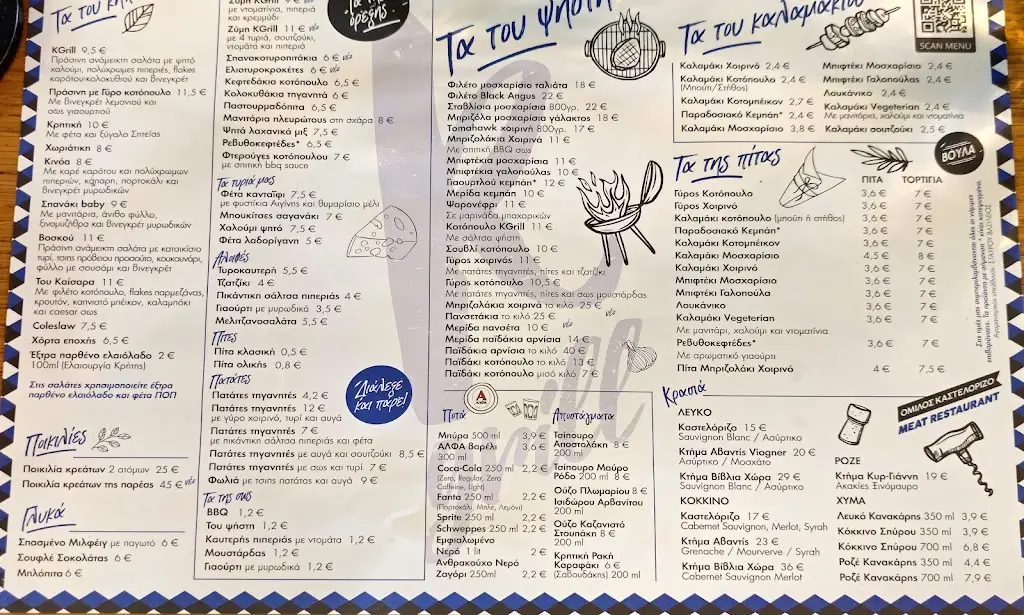 Τα του κή
KGrill 9,5 €
Πράσινη ανάμεικτη σαλάτα με ψητό
χαλούμι, πολύχρωμες πιπεριές, flakes
καρότου-κολοκυθιού και βινεγκρέτ
Πράσινη με Γύρο κοτόπουλο 11,5 €
Με βινεγκρέτ λεμονιού και
σως γιαουρτιού
Κρητική 10 €
Με φέτα και ξύγαλο Σητείας
Χωριάτικη 8 €
Κινόα 8 €
Με καρέ καρότου και πολύχρωμων
πιπεριών, κάπαρη, πορτοκάλι και
βινεγκρέτ μυρωδικών
Σπανάκι baby 9 €
Με μανιτάρια, άνιθο φύλλο,
ξινομυζήθρα και βινεγκρέτ μυρωδικών
Βοσκού 11 €
Πράσινη ανάμεικτη σαλάτα με κατσικίσιο
τυρί, τσιπς πρόβειου προσούτο, κουκουνάρι,
φύλλο με σουσάμι και βινεγκρέτ
Του Καίσαρα 11 €
Με φιλέτο κοτόπουλο, flakes παρμεζάνας,
κρουτόν, καπνιστό μπέικον, καλαμπόκι
και caesar σως
Coleslaw 7,5 €
Χόρτα εποχής 6,5 €
Έξτρα παρθένο ελαιόλαδο 2 €
100ml (Ελαιουργία Κρήτης)
Στις σαλάτες χρησιμοποιείτε έξτρα
παρθένο ελαιόλαδο και φέτα ΠΟΠ
Ποικιλίες
Ποικιλία κρεάτων 2 ατόμων 25 €
Ποικιλία κρεάτων της παρέας 45 € νέο
Γλυκά
Σπασμένο Μιλφέιγ με παγωτό 6 €
Σουφλέ Σοκολάτας 6 €
Μπλόπιτα 6 €
Ζύμη KGrill 9 €
με ντοματίνια, πιπεριά
και κρεμμύδι
Ζύμη KGrill 11 € νέο
με 4 τυριά, σουτζούκι,
ντομάτα και πιπεριά
Σπανακοτυροπιτάκια 6 € νέο
Ελιοτυροκροκέτες 6 € νέο
Κεφτεδάκια κοτόπουλο 6,5 €
Κολοκυθάκια τηγανητά 6 €
Παστουρμαδόπιτα 6,5 €
Μανιτάρια πλευρώτους στη σχάρα 8 €
Ψητά λαχανικά μιξ 7,5 €
Ρεβυθοκεφτέδες* 6,5 €
Φτερούγες κοτόπουλου 7 €
με σπιτική bbq sauce
Τα τυριά μας
Φέτα κανταΐφι 7,5 €
με φυστίκια Αιγίνης και θυμαρίσιο μέλι
Μπουκίτσες σαγανάκι 7 €
Χαλούμι ψητό 7,5 €
Φέτα λαδορίγανη 5 €
Αλοιφές
Τυροκαυτερή 5,5 €
Τζατζίκι 4 €
Πικάντικη σάλτσα πιπεριάς 4 €
Γιαούρτι με μυρωδικά 3,5 €
Μελιτζανοσαλάτα 5,5 €
Πίτες
Πίτα κλασική 0,5 €
Πίτα ολικής 0,8 €
Πατάτες
Πατάτες τηγανητές 4,2 €
Πατάτες τηγανητές 12 €
με γύρο χοιρινό, τυρί και αυγά
Πατάτες τηγανητές 7 €
με πικάντικη σάλτσα πιπεριάς και φέτα
Πατάτες τηγανητές με αυγά και σουτζούκι 8,5 €
Πατάτες τηγανητές με σως και τυρί 7 €
Φωλιά με τσιπς πατάτας και αυγά 9 €
Διάλεξε
και πάρε!
Τα της σως
BBQ 1,2 €
Του ψήστη 1,2 €
Καυτερής πιπεριάς με ντομάτα 1,2 €
Μουστάρδας 1,2 €
Γιαούρτι με μυρωδικά 1,2 €
Τα της
όρεξης
Τα του ψήστη
Φιλέτο μοσχαρίσιο ταλιάτα 18 €
Φιλέτο Black Angus 22 €
Σταβλίσια μοσχαρίσια 800γρ. 22 €
Μπριζόλα μοσχαρίσια γάλακτος 18 €
Tomahawk χοιρινή 800γρ. 17 €
Μπριζολάκια Χοιρινά 11 €
Με σπιτική BBQ σως
Μπιφτέκια μοσχαρίσια 11 €
Μπιφτέκια γαλοπούλας 10 €
Γιαουρτλού κεμπάπ* 12 €
Μερίδα κεμπάπ 10 €
Ψαρονέφρι 11 €
Σε μαρινάδα μπαχαρικών
Κοτόπουλο KGrill 11 €
Με σάλτσα ψήστη
Σουβλί κοτόπουλο 10 €
Γύρος χοιρινός 11 €
Με πατάτες τηγανητές, πίτες και τζατζίκι
Γύρος κοτόπουλο 10,5 €
Με πατάτες τηγανητές, πίτες και σως μουστάρδας
Μπριζολάκια χοιρινά το κιλό 25 € νέο
Πανσέτακια το κιλό 25 €
Μερίδα πανσέτα 10 € νέο
Μερίδα παϊδάκια αρνίσια 14 €
Παϊδάκια αρνίσια το κιλό 40 €
Παϊδάκι κοτόπουλο το κιλό 13 €
Παϊδάκι κοτόπουλο μισό κιλό 7 €
Ποτά
Μπύρα 500 ml 3,9 €
ΑΛΦΑ Βαρέλι 3,6 €
300 ml
Coca-Cola 250 ml 2,2 €
(Zero, Regular, Zero
Caffeine, Light)
Fanta 250 ml 2,2 €
(Πορτοκάλι, Μπλε, Λεμόνι)
Sprite 250 ml 2,2 €
Schweppes 250 ml 2,2 €
Εμφιαλωμένο
Νερό 1 lit 2 €
Ανθρακούχο Νερό
Ζαγόρι 250ml 2,2 €
Αποστάγματα
Τσίπουρο
Αποστολάκη 8 €
200 ml
Τσίπουρο Μαύρο
Ρόδο 200 ml 8 €
Ούζο Πλωμαρίου 8 €
Ισιδώρου Αρβανίτου
200 ml
Ούζο Καζανιστό
Στουπάκη 8 €
200 ml
Κρητική Ρακή
Καραφάκι 6 €
(Σαβουδάκης) 200 ml
Τα του καλαμακιού
SCAN MENU
Καλαμάκι Χοιρινό 2,4 €
Καλαμάκι Κοτόπουλο 2,4 €
(Μπούτι/Στήθος)
Καλαμάκι Κοτομπέικον 2,7 €
Παραδοσιακό Κεμπάπ* 2,4 €
Καλαμάκι Μοσχαρίσιο 3,8 €
Μπιφτέκι Μοσχαρίσιο 2,4 €
Μπιφτέκι Γαλοπούλας 2,4 €
Λουκάνικο 2,4 €
Καλαμάκι Vegeterian 2,4 €
Με μανιτάρια, χαλούμι και ντοματίνια
Καλαμάκι σουτζούκι 2,5 €
ΒΟΥΛΑ
Τα της πίτας
ΠΙΤΑ ΤΟΡΤΙΓΙΑ
Γύρος Κοτόπουλο 3,6 € 7 €
Γύρος Χοιρινό 3,6 € 7 €
Καλαμάκι κοτόπουλο (μπούτι ή στήθος) 3,6 € 7 €
Παραδοσιακό Κεμπάπ* 3,6 € 7 €
Καλαμάκι Κοτομπέικον 3,6 € 7 €
Καλαμάκι Μοσχαρίσιο 4,5 € 8 €
Καλαμάκι Χοιρινό 3,6 € 7 €
Μπιφτέκι Μοσχαρίσιο 3,6 € 7 €
Μπιφτέκι Γαλοπούλα 3,6 € 7 €
Λουκάνικο 3,6 € 7 €
Καλαμάκι Vegeterian 3,6 € 7 €
Με μανιτάρι, χαλούμι και ντοματίνια
Ρεβυθοκεφτέδες* 3,6 € 7 €
Με αρωματικό γιαούρτι
Πίτα Μπριζολάκι Χοιρινό 4 € 7,5 €
Κρασιά
ΛΕΥΚΟ
Καστελόριζο 15 €
Sauvignon Blanc / Ασύρτικο
Κτήμα Αβαντίς Viogner 20 €
Ασύρτικο / Μοσχάτο
Κτήμα Βίβλια Χώρα 29 €
Sauvignon Blanc / Ασύρτικο
ΚΟΚΚΙΝΟ
Καστελόριζο 17 €
Cabernet Sauvignon, Merlot, Syrah
Κτήμα Αβαντίς 23 €
Grenache / Mourverve / Syrah
Κτήμα Βίβλια Χώρα 36 €
Cabernet Sauvignon Merlot
ΟΜΙΛΟΣ ΚΑΣΤΕΛΟΡΙΖΟ
MEAT RESTAURANT
ΡΟΖΕ
Κτήμα Κυρ-Γιάννη 19 €
Ακακίες Ξινόμαυρο
ΧΥΜΑ
Λευκό Κανακάρης 350 ml 3,9 €
Κόκκινο Σπύρου 350 ml 3,9 €
Κόκκινο Σπύρου 700 ml 6,8 €
Ροζέ Κανακάρης 350 ml 4,4 €
Ροζέ Κανακάρης 700 ml 7,9 €